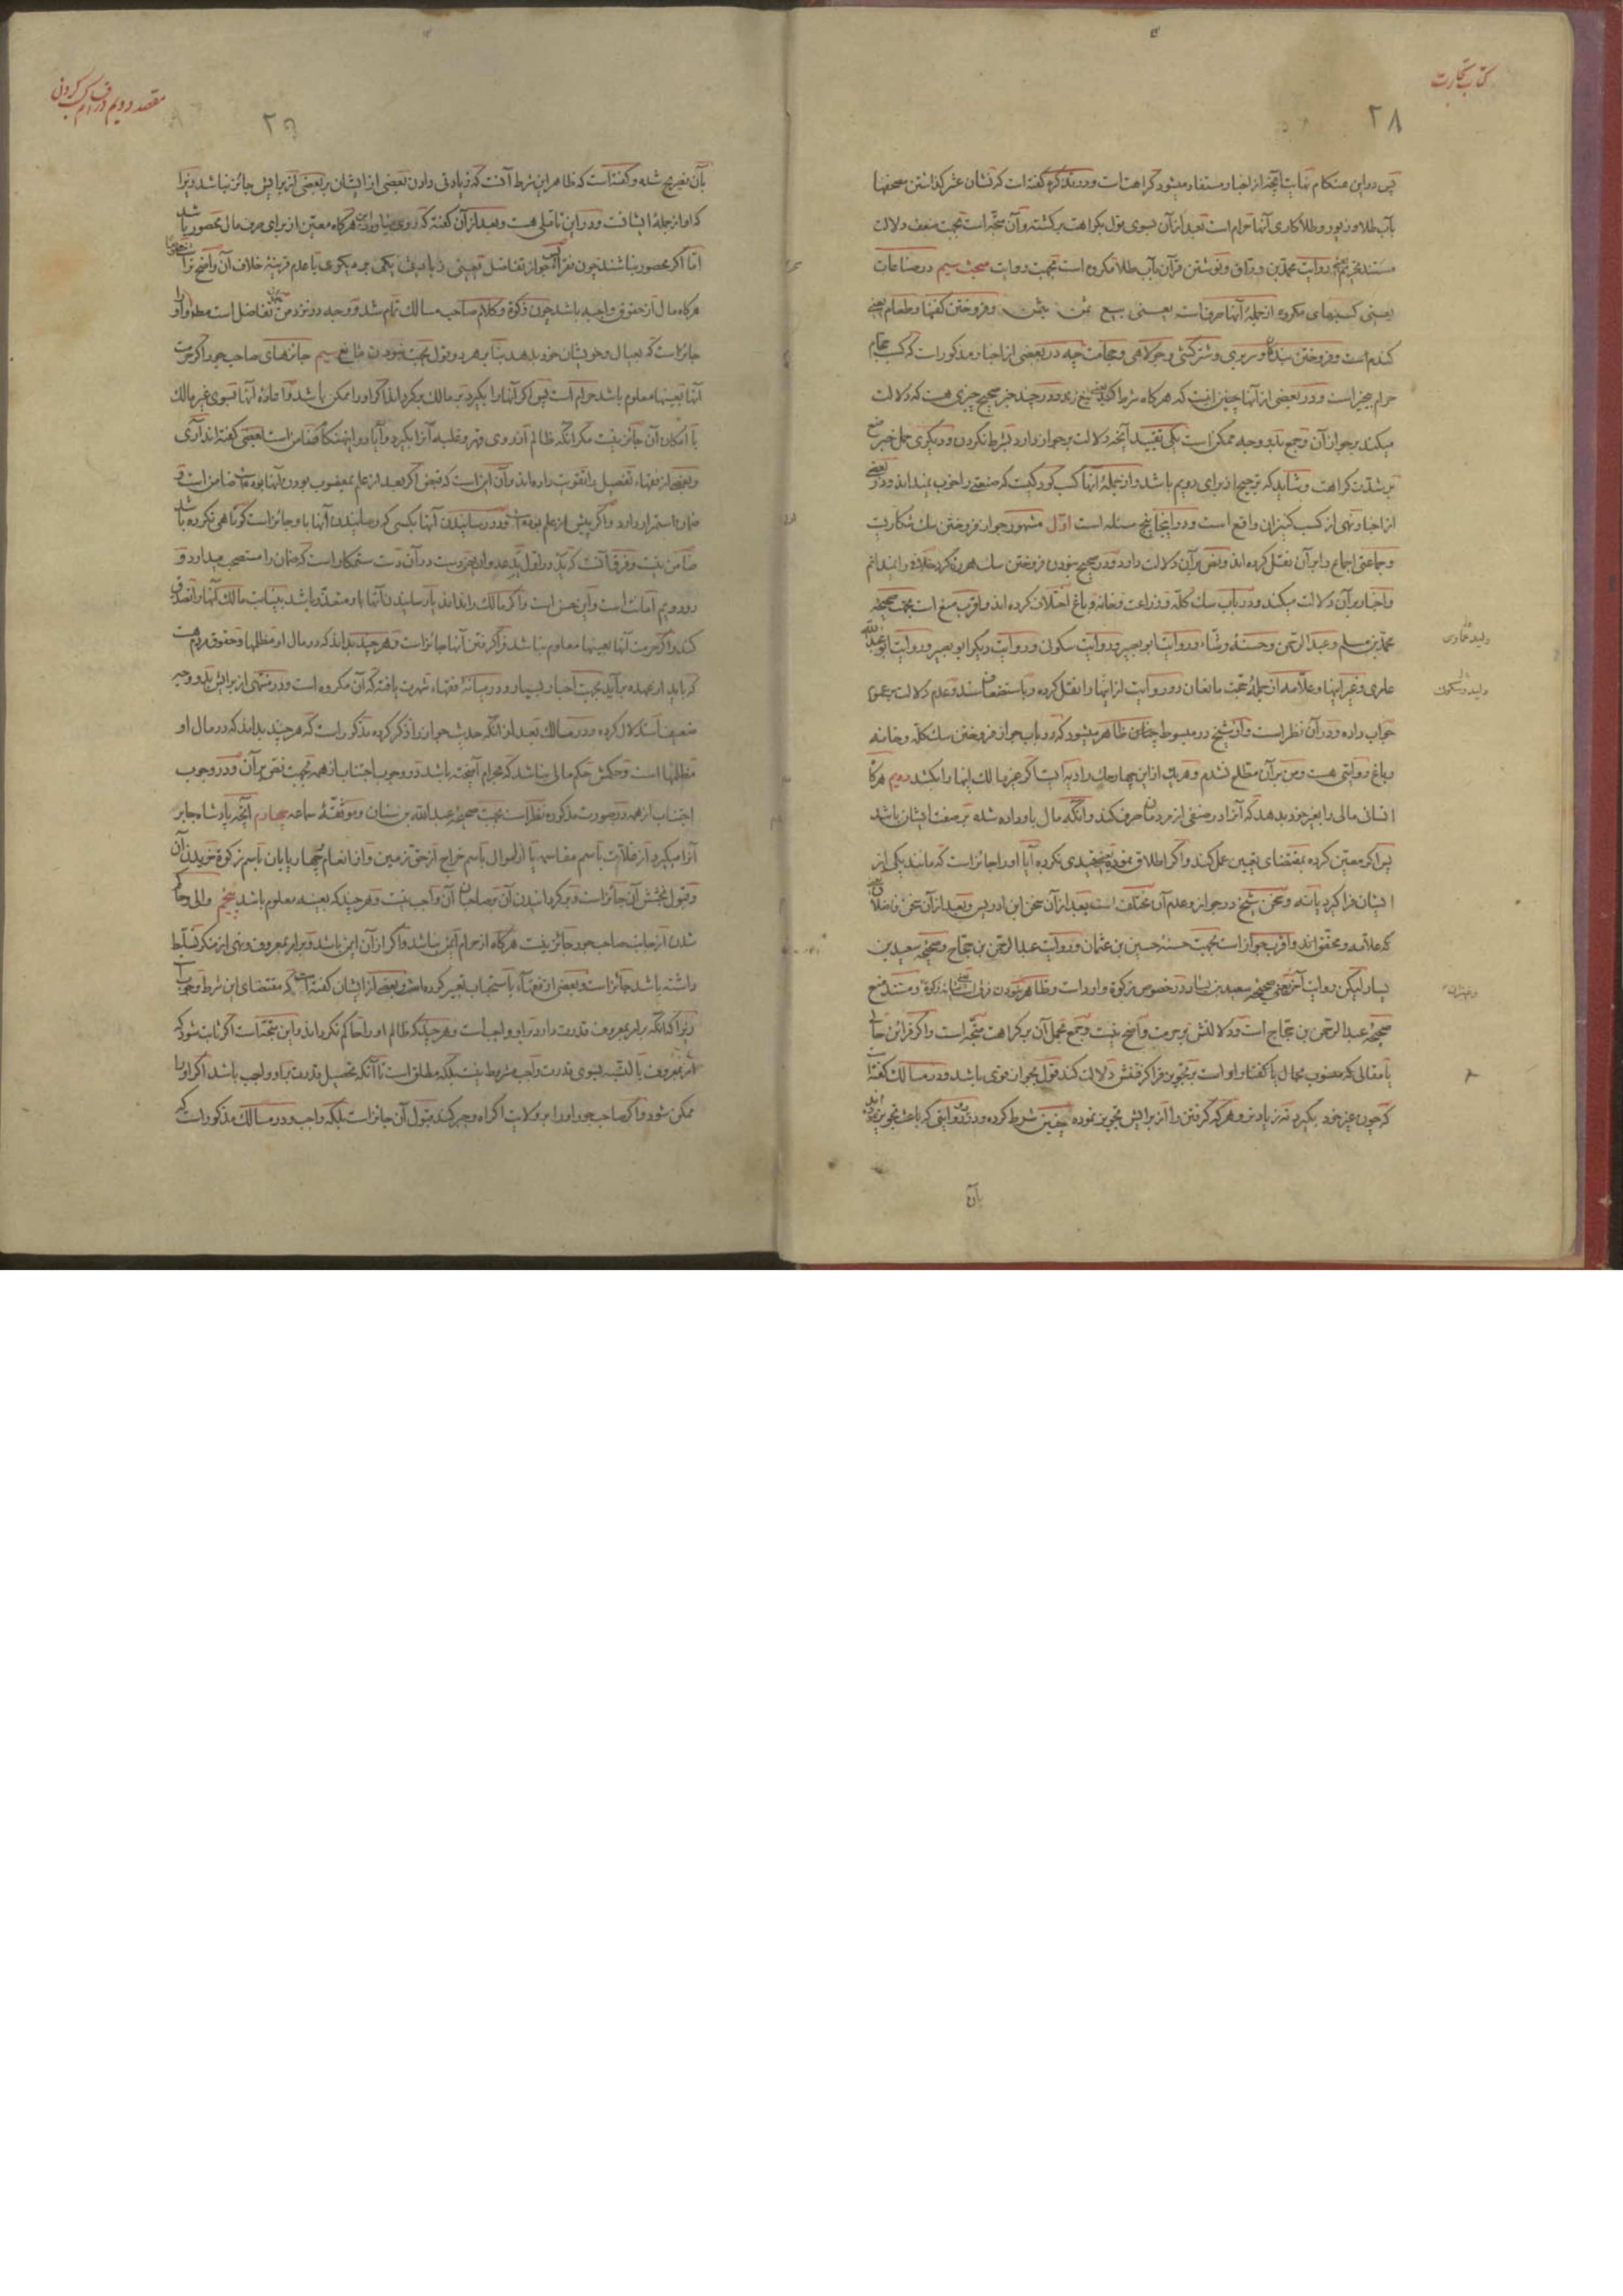 کتاب تجارت
۲۸
پس در این هنکام نهایت آنچه از اخبار مستفاد میشود کراهتست و در تذکره کفته است که نشان عشر کذاشتن مصحفها
بآب طلا و زیور و طلاکاری آنها حرام است بعد از آن بسوی قول بکراهت برکشته و آن متّجه است بجهت ضعف دلالت
مستند تحریم یعنی روایت محمد بن ورّاق و نوشتن قرآن بآب طلا مکروه است بجهت روایت مبحث سیم در صناعات
یعنی کسبهای مکروه از جملهٔ آنها صرفست یعنی بیع ثمن بثمن و فروختن کفنها و طعام یعنی
کندم است و فروختن بندکان و سر بری و شتر کشی و جولاهی و حجامت چه در بعضی از اخبار مذکور است که کسب حجام
حرام است و در بعضی از آنها چنین است که هرکاه شرط کند یعنی و در چند خبر صحیح چیزی هست که دلالت
میکند بر جواز آن و جمع بدو وجه ممکن است یکی تقیید آنچه دلالت بر جواز دارد بشرط نکردن و دیکری حمل خبر منع
بر شدّت کراهت و شاید که ترجیح از برای دویم باشد و از جملهٔ آنها کسب کودکیست که صنعتی را خوب نمیداند و در بعضی
از اخبار نهی از کسب کنیزان واقع است و در اینجا پنج مسئله است اوّل مشهور جواز فروختن سک شکاریست
و جماعتی اجماع را بر آن نقل کرده اند و نص بر آن دلالت دارد و در صحیح بودن فروختن سک هرزه کرد خلافی را نمیدانم
و اخبار بر آن دلالت میکند و در باب سک کلّه و زراعت و خانه و باغ اختلاف کرده اند و اقرب منع است بجهت صحیحهٔ
محمّد بن مسلم و عبد الرّحمن و حسنهٔ وشّاء و روایت ابو بصیر و روایت سکونی و روایت دیکر ابو بصیر و روایت ابو عبد اللّه
عامری و غیر اینها و علّامه از جملهٔ حجّت مانعان دو روایت از اینها را نقل کرده و باستضعاف سند و عدم دلالت بر عموم
جواب داده و در آن نظر است و از شیخ در مبسوط چنین ظاهر میشود که در باب جواز فروختن سک کلّه و خانه
و باغ روایتی هست و من بر آن مطّلع نشدم و هر یک از این چهار سک را دیه ایست اکر غیر مالک اینها را بکشد دویم هرکاه
انسان مالی را بغیر خود بدهد که آنرا در صنفی از مردمان صرف کند و آنکه مال باو داده شده بر صفت ایشان باشد
پس اکر معیّن کرده بمقتضای تعیین عمل کند و اکر اطلاق نموده یعنی قیدی نکرده آیا او را جائز است که مانند یکی از
ایشان فرا کیرد یا نه و سخن شیخ در جواز و عدم آن مختلف است بعد از آن سخن ابن ادریس و بعد از آن سخن فاضلان یعنی
که علّامه و محقّق اند و اقرب جواز است بجهت حسنهٔ حسین بن عثمان و روایت عبد الرّحمن بن حجّاج و صحیحهٔ سعید بن
یسار لیکن روایت آخر یعنی صحیحهٔ سعید بن یسار در خصوص زکوة وارد است و مستند منع
صحیحهٔ عبد الرحمن بن حجّاج است و دلالتش بر حرمت واضح نیست و جمع بحمل آن بر کراهت متّجه است و اکر قرائن حالی
یا مقالی که منسوب بحال یا کفتار او است بر تجویز فرا کرفتنش دلالت کند قول بجواز قوی باشد و در مسالک کفته است
که چون غیر خود بکیرد نه زیادتر و هر که کرفتن را از برایش تجویز نموده چنین شرط کرده و در دو روایتی که باعث تجویز بود اند
بآن
مقصد دویم در اقسام کسب کردنی
۲۹
بآن تصریح شده و کفته است که ظاهر این شرط آنست که زیادتی دادن بعضی از ایشان بر بعضی از برایش جائز نباشد زیرا
که او از جملهٔ ایشانست و در این تأملی هست و بعد از آن کفته که هرکاه معیّن از برای صرف مال محصور باشد
امّا اکر محصور نباشند چون فقراء جواز تفاضل یعنی زیادتی یکی بر دیکری با عدم قرینهٔ خلاف آن واضح تر است
هرکاه مال از حقوق واجبه باشد چون زکوة و کلام صاحب مسالک تمام شد و وجه در نزد من تفاضل است مطلقا و او را
جائز است که بعیال و خویشان خود بدهد بنا بر هر دو قول بجهت نبودن مانع سیم جائزهای صاحب جور اکر حرمت
آنها بعینها معلوم باشد حرام است پس اکر آنها را بکیرد بر مالک برکرداند اکر او را ممکن باشد و اعادهٔ آنها بسوی غیر مالک
با امکان آن جائز نیست مکر آنکه ظالم از روی قهر و غلبه آنرا بکیرد و آیا در اینهنکام ضامن است بعضی کفته اند آری
و بعضی از فقهاء تفصیل را تقویت داده اند و آن این است که قبض اکر بعد از علم بمغصوب بودن آنها بوده است ضامن است و
ضمان استمرار دارد و اکر پیش از علم بوده است و در رسانیدن آنها بکسی که رسانیدن آنها باو جائز است کوتاهی نکرده باشد
ضامن نیست و فرق آنست که ید در اول ید عدوان است که ضمانرا مستصحب میدارد و
در دویم امانت است و این حسن است و اکر مالک را نداند یا رسانیدن آنها باو متعذّر باشد بنیابت مالک آنها را تصدّق
کند و اکر حرمت آنها بعینها معلوم نباشد فرا کرفتن آنها جائز است و هر چند بداند که در مال او مظلمها و حقوق مردم هست
که باید از عهده بر آید بجهت اخبار بسیار و در میانهٔ فقهاء شهرت یافته که آن مکروه است و در منتهی از برایش بدو وجه
ضعیف استدلال کرده و در مسالک بعد از آنکه حدیث جواز را ذکر کرده مذکور است که هر چند بداند که در مال او
مظلمها است و حکمش حکم مالی نباشد که بحرام آمیخته باشد در وجوب اجتناب از همه بجهت نص بر آن و در وجوب
اجتناب از همه در صورت مذکوره نظر است بجهت صحیحهٔ عبد اللّه بن سنان و موثقهٔ سماعه چهارم آنچه پادشاه جابر
آنرا میکیرد از غلّات باسم مقاسمه یا از اموال باسم خراج از حق زمین و از انعام چهار پایان باسم زکوة خریدن آن
و قبول بخشش آن جائز است و برکردانیدن آن بر صاحبان آن واجب نیست و هر چند که بعینه معلوم باشد پنجم والی و حاکم
شدن از جانب صاحب جور جائز نیست هرکاه از حرام ایمن نباشد و اکر از آن ایمن باشد و بر امر بمعروف و نهی از منکر تسلّط
داشته باشد جائز است و بعضی از فقهاء باستحباب تعبیر کرده اند و بعضی از ایشان کفته است که مقتضای این شرط وجوبست
زیرا که آنکه بر امر بمعروف قدرت دارد بر او واجب است و هر چند که ظالم او را حاکم نکرداند و این متّجه است اکر ثابت شود که
امر بمعروف بالنّسبه بسوی قدرت واجب مشروط نیست بلکه مطلق است تا آنکه تحصیل قدرت بر او واجب باشد اکر او را
ممکن شود و اکر صاحب جور او را بر ولایت اکراه و جبر کند قبول آن جائز است بلکه واجب و در مسالک مذکور است که